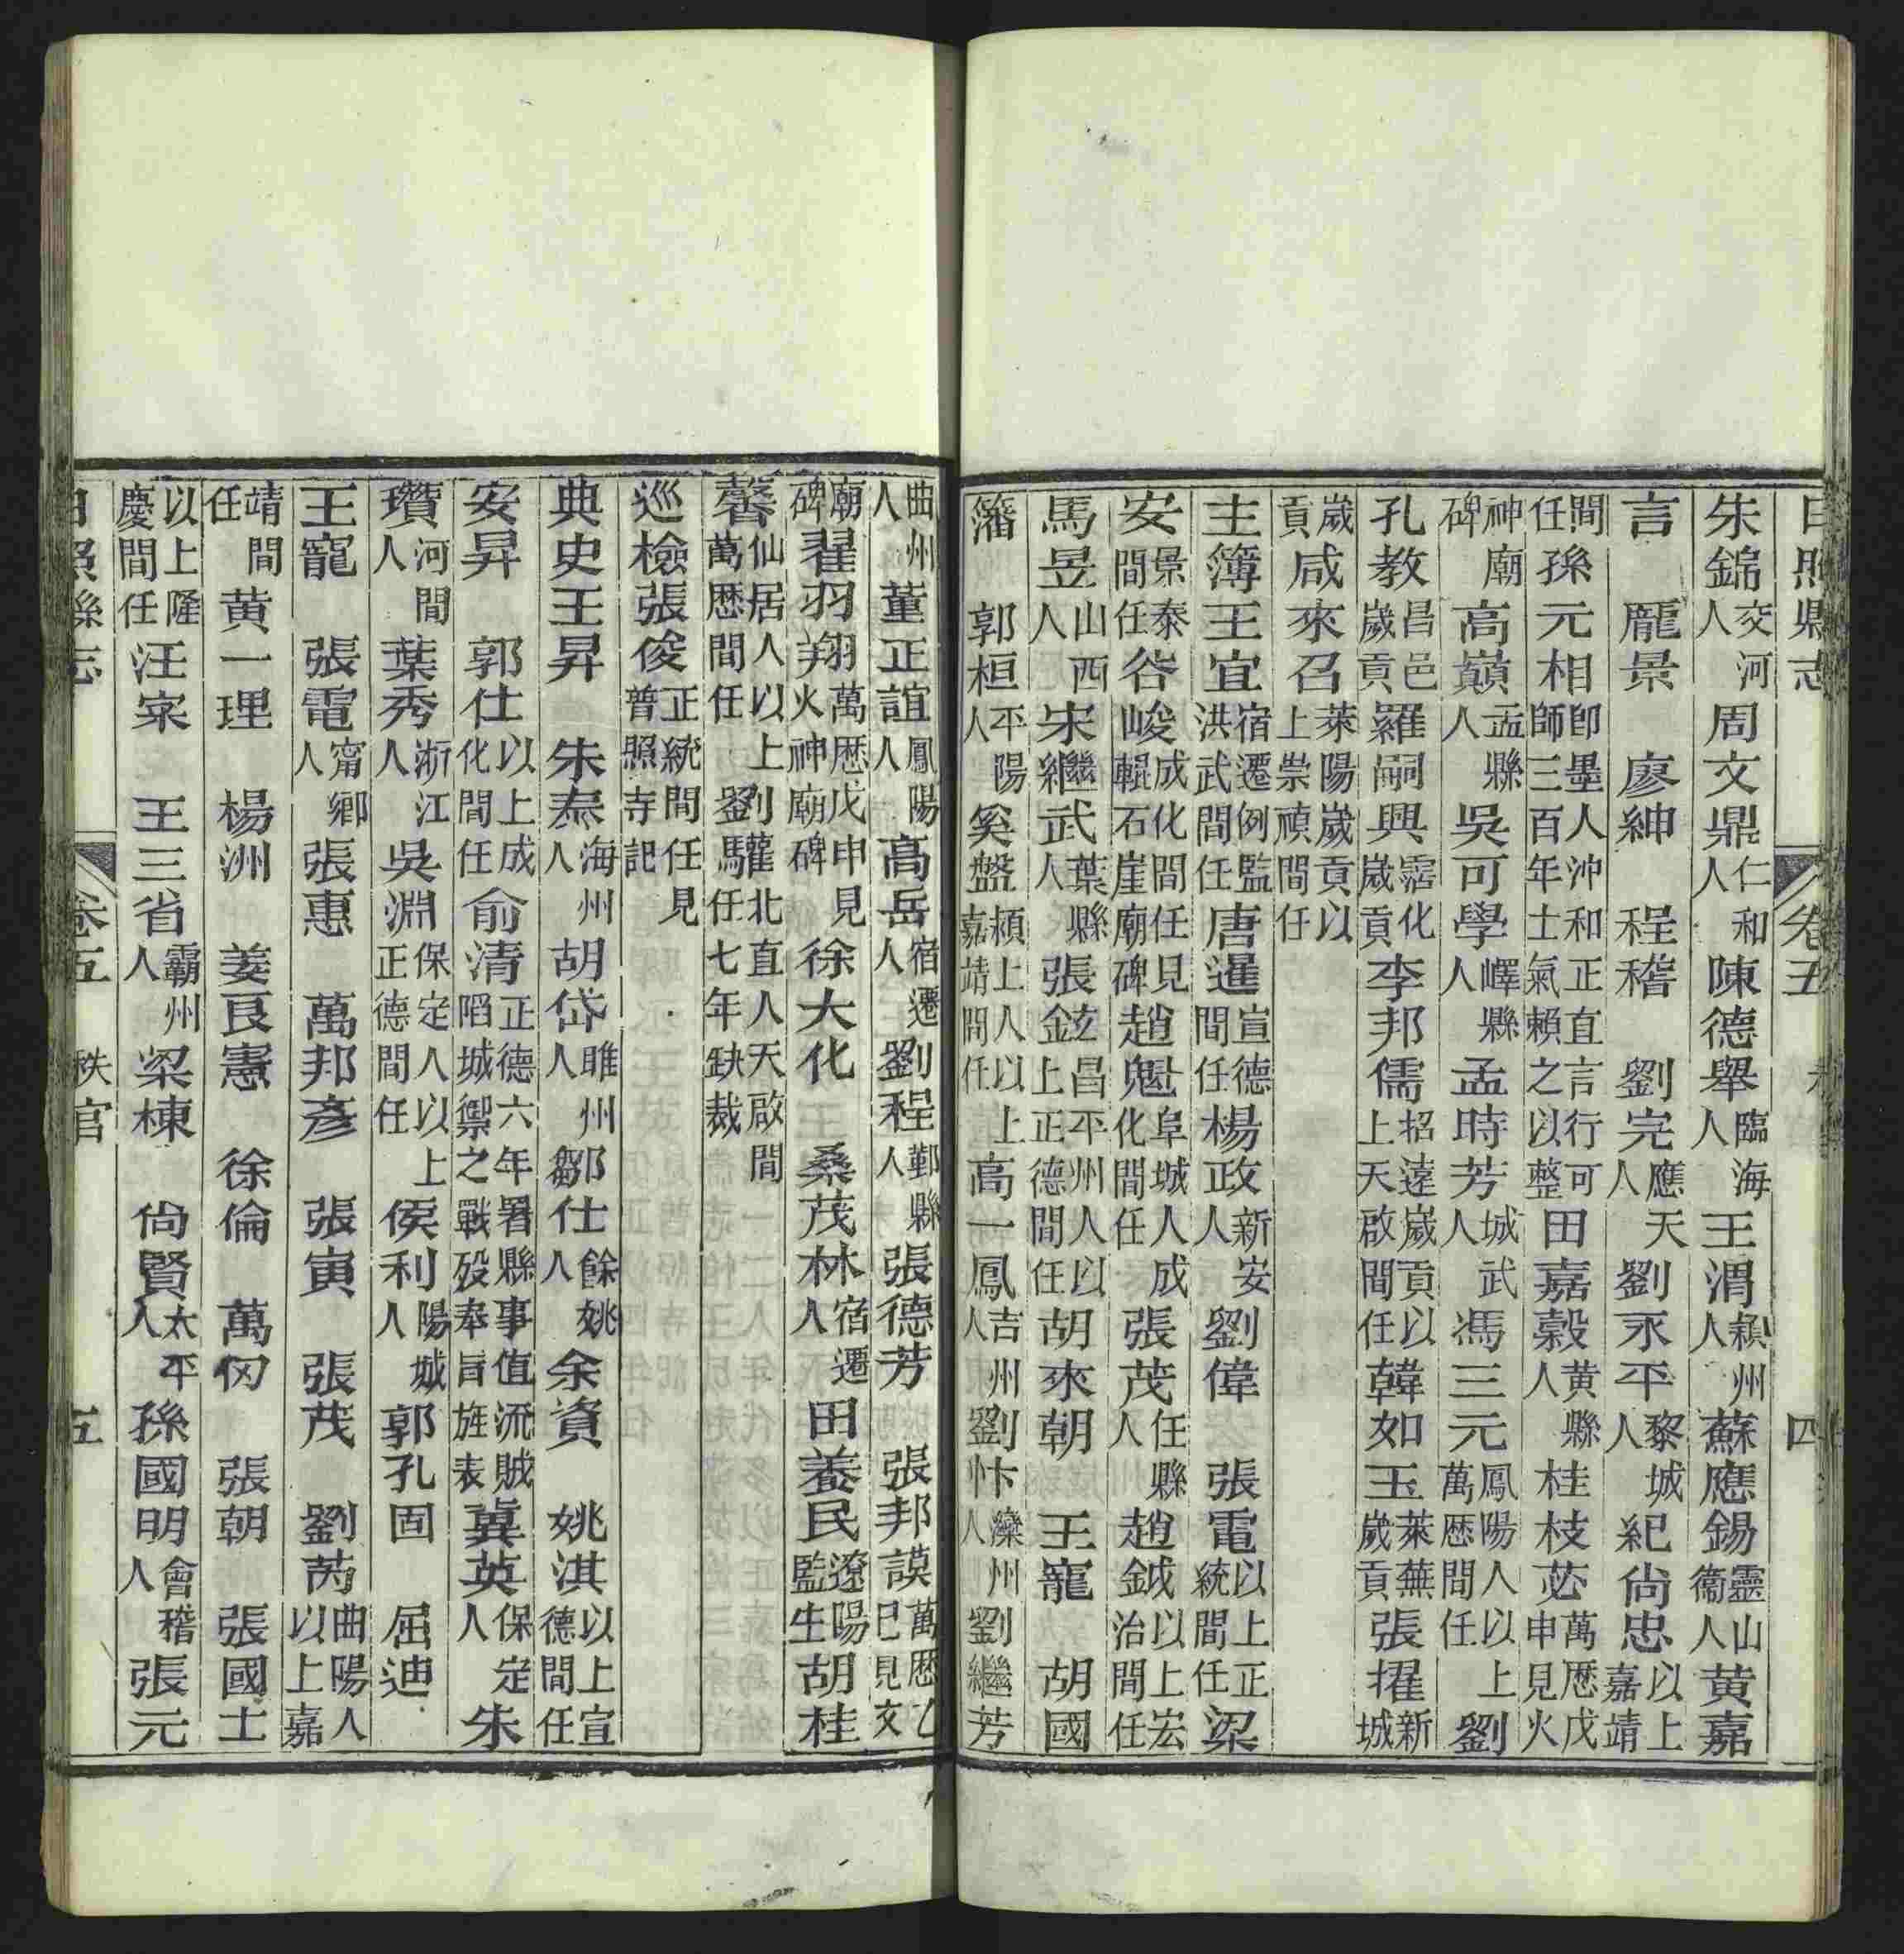 日照縣志 卷五 四
朱錦交河人 周文鼎仁和人 陳德舉臨海人 王渭潁州人 蘇應錫靈山衞人 黃嘉
言 龐景 廖紳 程稽 劉完應天人 劉永平黎城人 紀尙忠以上嘉靖
間任 孫元相卽墨人沖和正直言行可師三百年士氣賴之以整 田嘉穀黃縣人 桂枝苾萬歷戊申見火
神廟碑 高巔孟縣人 吳可學嶧縣人 孟時芳城武人 馮三元鳳陽人以上萬歷間任 劉
孔教昌邑歲貢 羅嗣興霑化歲貢 李邦儒招遠歲貢以上天啟間任 韓如玉萊蕪歲貢 張擢新城
歲貢 咸來召萊陽歲貢以上崇禎間任
主簿王宜宿遷例監洪武間任 唐暹宣德間任 楊政新安人 劉偉 張電以上正統間任 梁
安景泰間任 谷峻成化間任見輥石崖廟碑 趙魁阜城人成化間任 張茂任縣人 趙鉞以上宏治間任
馬昱山西人 宋繼武葉縣人 張鉉昌平州人以上正德間任 胡來朝 王寵 胡國
籓 郭桓平陽人 奚盤潁上人以上嘉靖間任 高一鳳吉州人 劉忭灤州人 劉繼芳
曲州人 董正誼鳳陽人 高岳宿遷人 劉程鄞縣人 張德芳 張邦謨萬歷乙巳見文
廟碑 翟羽翔萬歷戊申見火神廟碑 徐大化 桑茂林宿遷人 田養民遼陽監生 胡桂
馨仙居人以上萬歷間任 劉鑵北直人天啟間劉馬任七年缺裁
巡檢張俊正統間任見普照寺記
典史王昇 朱焘海州人 胡岱睢州人 鄒仕餘姚人 余資 姚淇以上宣德間任
安昇 郭仕以上成化間任 俞清正德六年署縣事値流賊䧟城禦之戰歿奉旨旌表 冀英保定人 朱
瓚河間人 葉秀浙江人 吳淵保定人以上正德間任 侯利陽城人 郭孔固 屈迪
王寵 張電甯鄉人 張惠 萬邦彥 張寅 張茂 劉芮曲陽人以上嘉
靖間任 黃一理 楊洲 姜艮憲 徐倫 萬冈 張朝 張國士
以上隆慶間任 汪寀 王三省霸州人 梁棟 尙賢太平人 孫國明會稽人 張元
日照縣志 卷五 秩官 五